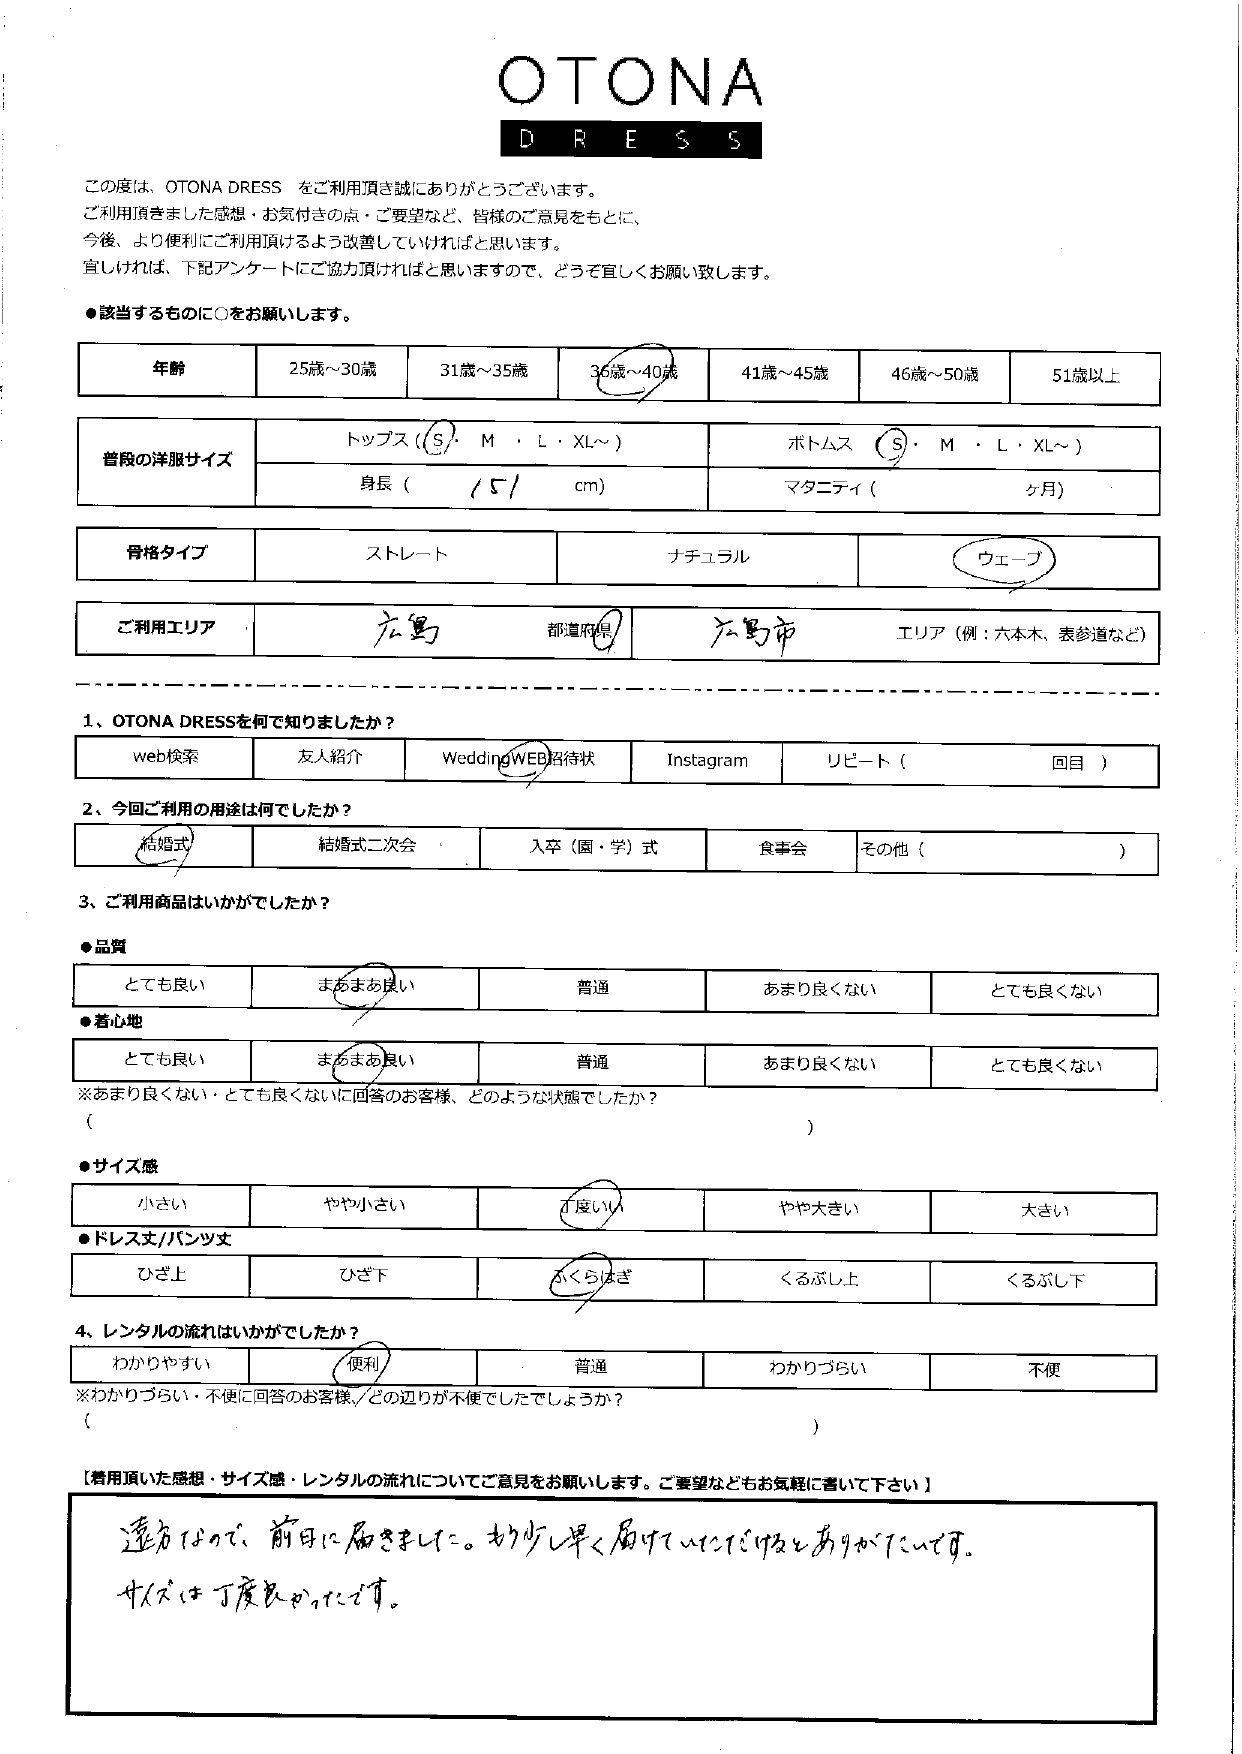 OTONA
DRESS
この度は、OTONA DRESS　をご利用頂き誠にありがとうございます。
ご利用頂きました感想・お気付きの点・ご要望など、皆様のご意見をもとに、
今後、より便利にご利用頂けるよう改善していければと思います。
宜しければ、下記アンケートにご協力頂ければと思いますので、どうぞ宜しくお願い致します。
●該当するものに○をお願いします。
年齢 25歳～30歳 31歳～35歳 36歳～40歳 41歳～45歳 46歳～50歳 51歳以上
普段の洋服サイズ トップス（S・ M ・ L ・ XL～） ボトムス （S・ M ・ L ・ XL～）
身長（ 151 cm） マタニティ（ ヶ月）
骨格タイプ ストレート ナチュラル ウェーブ
ご利用エリア 広島 都道府県 広島市 エリア（例：六本木、表参道など）
1、OTONA DRESSを何で知りましたか？
web検索 友人紹介 WeddingWEB招待状 Instagram リピート（ 回目 ）
2、今回ご利用の用途は何でしたか？
結婚式 結婚式二次会 入卒（園・学）式 食事会 その他（ ）
3、ご利用商品はいかがでしたか？
●品質
とても良い まあまあ良い 普通 あまり良くない とても良くない
●着心地
とても良い まあまあ良い 普通 あまり良くない とても良くない
※あまり良くない・とても良くないに回答のお客様、どのような状態でしたか？
（ ）
●サイズ感
小さい やや小さい 丁度いい やや大きい 大きい
●ドレス丈/パンツ丈
ひざ上 ひざ下 ふくらはぎ くるぶし上 くるぶし下
4、レンタルの流れはいかがでしたか？
わかりやすい 便利 普通 わかりづらい 不便
※わかりづらい・不便に回答のお客様、どの辺りが不便でしたでしょうか？
（ ）
【着用頂いた感想・サイズ感・レンタルの流れについてご意見をお願いします。ご要望などもお気軽に書いて下さい】
遠方なので、前日に届きました。もう少し早く届けていただけるとありがたいです。
サイズは丁度良かったです。